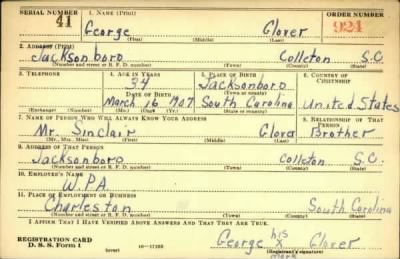 SERIAL NUMBER 1. NAME (Print) ORDER NUMBER
41 George Glover 924
(First) (Middle) (Last)
2. ADDRESS (Print)
Jacksonboro Colleton S.C.
(Number and street or R. F. D. number) (Town) (County) (State)
3. TELEPHONE 4. AGE IN YEARS 5. PLACE OF BIRTH 6. COUNTRY OF CITIZENSHIP
34 Jacksonboro
DATE OF BIRTH (Town or county)
March 16 1907 South Carolina United States
(Exchange) (Number) (Mo.) (Day) (Yr.) (State or country)
7. NAME OF PERSON WHO WILL ALWAYS KNOW YOUR ADDRESS 8. RELATIONSHIP OF THAT PERSON
Mr. Sinclair Brother
(Mr., Mrs., Miss) (First) (Middle) (Last)
9. ADDRESS OF THAT PERSON
Jacksonboro Colleton S.C.
(Number and street or R. F. D. number) (Town) (County) (State)
10. EMPLOYER'S NAME
W.P.A.
11. PLACE OF EMPLOYMENT OR BUSINESS
Charleston South Carolina
(Number and street or R. F. D. number) (Town) (County) (State)
I AFFIRM THAT I HAVE VERIFIED ABOVE ANSWERS AND THAT THEY ARE TRUE.
REGISTRATION CARD George his X Glover
D. S. S. Form 1 (over) (Registrant's signature)
mark